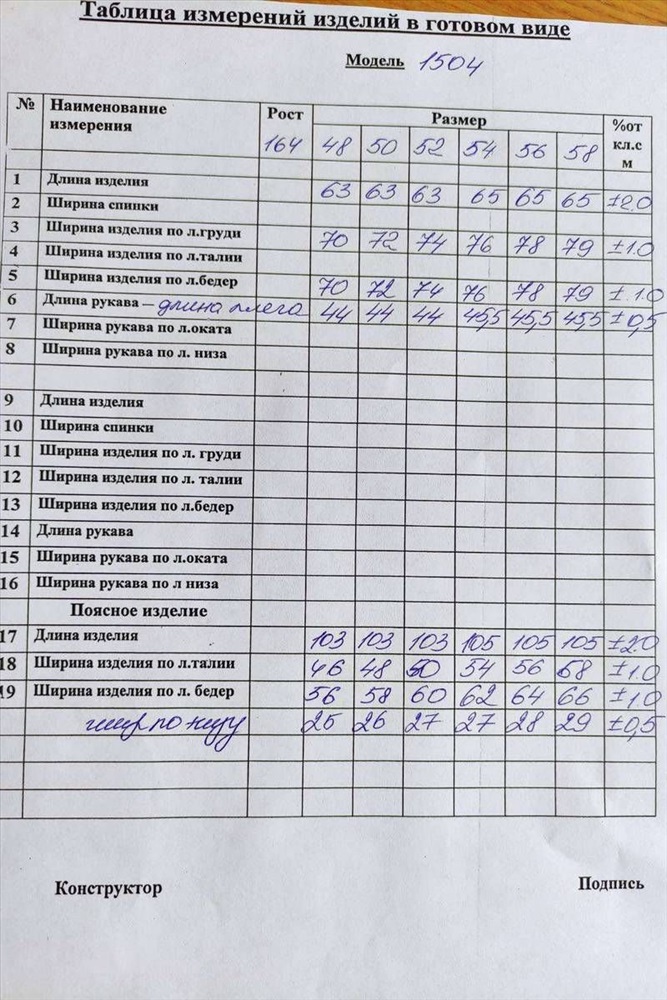 Таблица измерений изделий в готовом виде
Модель 1504
№ Наименование измерения Рост 164 Размер %от кл.с м
48 50 52 54 56 58
1 Длина изделия 63 63 63 65 65 65 ±2.0
2 Ширина спинки
3 Ширина изделия по л.груди 70 72 74 76 78 79 ±1.0
4 Ширина изделия по л.талии
5 Ширина изделия по л.бедер 70 72 74 76 78 79 ±1.0
6 Длина рукава – длина плеча 44 44 44 45,5 45,5 45,5 ±0,5
7 Ширина рукава по л.оката
8 Ширина рукава по л. низа
9 Длина изделия
10 Ширина спинки
11 Ширина изделия по л. груди
12 Ширина изделия по л. талии
13 Ширина изделия по л.бедер
14 Длина рукава
15 Ширина рукава по л.оката
16 Ширина рукава по л низа
Поясное изделие
17 Длина изделия 103 103 103 105 105 105 ±2.0
18 Ширина изделия по л.талии 46 48 50 54 56 58 ±1.0
19 Ширина изделия по л. бедер 56 58 60 62 64 66 ±1.0
шир по низу 25 26 27 27 28 29 ±0,5
Конструктор Подпись